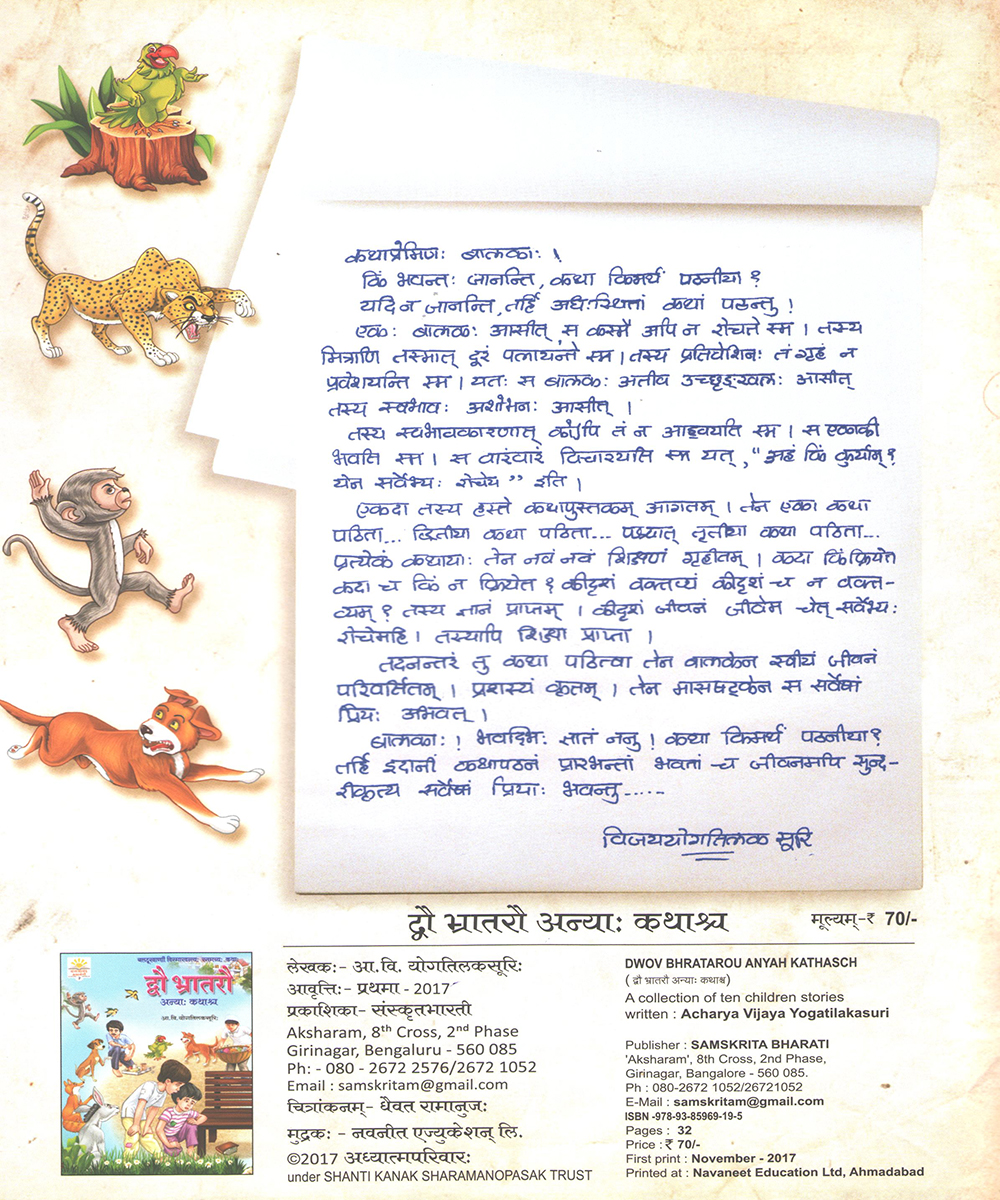 कथाप्रेमिणः बालकाः ।
किं भवन्तः जानन्ति, कथा किमर्थं पठनीया ?
यदि न जानन्ति, तर्हि अधःस्थितां कथां पठन्तु !
एकः बालकः आसीत्, स कस्मै अपि न रोचते स्म । तस्य
मित्राणि तस्मात् दूरं पलायन्ते स्म । तस्य प्रतिवेशिनः तं गृहं न
प्रवेशयन्ति स्म । यतः स बालकः अतीव उच्छृङ्खलः आसीत्
तस्य स्वभावः अशोभनः आसीत् ।
तस्य स्वभावकारणात् कोऽपि तं न आह्वयति स्म । स एकाकी
भवति स्म । स वारंवारं विचारयति स्म यत्, "अहं किं कुर्याम् ?
येन सर्वेभ्यः रोचेय" इति ।
एकदा तस्य हस्ते कथापुस्तकम् आगतम् । तेन एका कथा
पठिता... द्वितीया कथा पठिता... पश्चात् तृतीया कथा पठिता...
प्रत्येकं कथायाः तेन नवं नवं शिक्षणं गृहीतम् । कदा किं क्रियेत
कदा च किं न क्रियेत ? कीदृशं वक्तव्यं कीदृशं च न वक्त-
व्यम् ? तस्य ज्ञानं प्राप्तम् । कीदृशं जीवनं जीवेम चेत् सर्वेभ्यः
रोचेमहि । तस्यापि शिक्षा प्राप्ता ।
तदनन्तरं तु कथा पठित्वा तेन बालकेन स्वीयं जीवनं
परिवर्तितम् । प्रशस्यं कृतम् । तेन मासषट्केन स सर्वेषां
प्रियः अभवत् ।
बालकाः ! भवद्भिः ज्ञातं ननु ! कथा किमर्थं पठनीया ?
तर्हि इदानीं कथापठनं प्रारभन्तां भवतां च जीवनमपि सुन्द-
रीकृत्य सर्वेषां प्रियाः भवन्तु.....
विजययोगतिलक सूरि
द्वौ भ्रातरौ अन्याः कथाश्च
मूल्यम्-₹ 70/-
द्वौ भ्रातरौ
अन्याः कथाश्च
आ.वि.योगतिलकसूरिः
लेखकः- आ.वि. योगतिलकसूरिः
आवृत्तिः- प्रथमा - 2017
प्रकाशिका- संस्कृतभारती
Aksharam, 8th Cross, 2nd Phase
Girinagar, Bengaluru - 560 085
Ph: - 080 - 2672 2576/2672 1052
Email : samskritam@gmail.com
चित्रांकनम्- धैवत रामानुजः
मुद्रकः - नवनीत एज्युकेशन् लि.
©2017 अध्यात्मपरिवारः
under SHANTI KANAK SHARAMANOPASAK TRUST
DWOV BHRATAROU ANYAH KATHASCH
( द्वौ भ्रातरौ अन्याः कथाश्च )
A collection of ten children stories
written : Acharya Vijaya Yogatilakasuri
Publisher : SAMSKRITA BHARATI
'Aksharam', 8th Cross, 2nd Phase,
Girinagar, Bangalore - 560 085.
Ph : 080-2672 1052/26721052
E-Mail : samskritam@gmail.com
ISBN -978-93-85969-19-5
Pages : 32
Price : ₹ 70/-
First print : November - 2017
Printed at : Navaneet Education Ltd, Ahmadabad